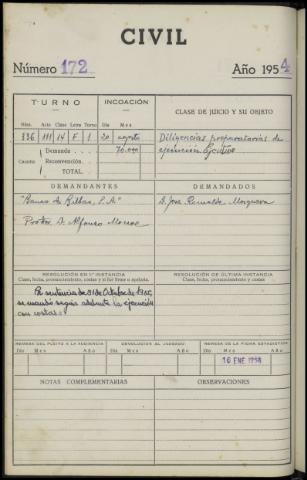 CIVIL
Número 172
Año 1954
TURNO
INCOACIÓN
CLASE DE JUICIO Y SU OBJETO
Núm. Acta Clase Letra Turno
Día Mes
836 111 14 F 1
20 agosto
Diligencias preparatorias de
ejecución
Cuantía
Demanda
70.000
Reconvención
TOTAL
DEMANDANTES
DEMANDADOS
"Banco de Bilbao, S.A."
D. José
Procdor. D. Alfonso
RESOLUCIÓN EN 1.ª INSTANCIA
Clase, fecha, pronunciamiento, costas y si fué firme o apelada.
RESOLUCIÓN DE ÚLTIMA INSTANCIA
Clase, fecha, pronunciamiento y costas
Por sentencia de 31 de Octubre de
se mandó seguir adelante la ejecución
con costas
REMESA DEL PLEITO A LA AUDIENCIA
DEVOLUCIÓN AL JUZGADO
REMESA DE LA FICHA ESTADÍSTICA
Día Mes Año
Día Mes Año
Día Mes Año
16 ENE 1956
NOTAS COMPLEMENTARIAS
OBSERVACIONES